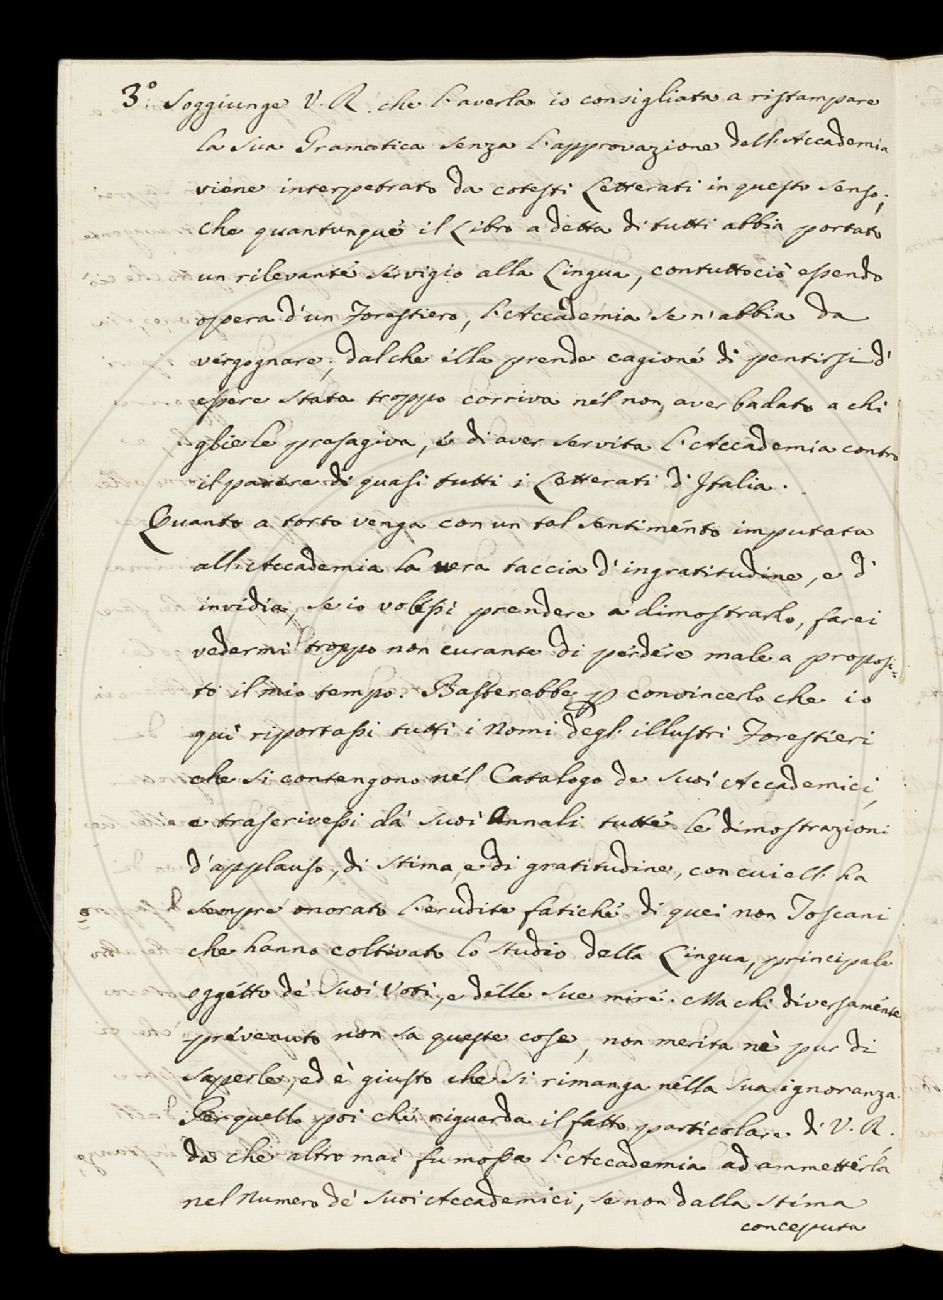 3.° Soggiunge V. R. che l'averla io consigliata a ristampare
la sua Gramatica senza l'approvazione dell'Accademia
viene interpetrato da cotesti Letterati in questo senso;
che quantunque il Libro a detta di tutti abbia portato
un rilevante servigio alla Lingua, contuttociò essendo
opera d'un Forestiero, l'Accademia se n'abbia da
vergognare; dal che ella prende cagione di pentirsi d'
essere stata troppo corriva nel non aver badato a chi
gliele presagiva, e di aver servita l'Accademia contro
il parere di quasi tutti i Letterati d'Italia.
Quanto a torto venga con un tal sentimento imputata
all'Accademia la nera taccia d'ingratitudine, e d'
invidia, se io volessi prendere a dimostrarlo, farei
vedermi troppo non curante di perdere male a proposi=
to il mio tempo. Basterebbe p convincerlo che io
quì riportassi tutti i Nomi degl'illustri Forestieri
che si contengono nel Catalogo de suoi Accademici,
e trascrivessi da' suoi Annali tutte le dimostrazioni
d'applauso, di stima, e di gratitudine, con cui ell'ha
sempre onorato l'erudite fatiche di quei non Toscani
che hanno coltivato lo studio della Lingua, principale
oggetto de' suoi Voti, e delle sue mire. Ma chi diversamente
prevenuto non sa queste cose, non merita nè pur di
saperle, ed è giusto che si rimanga nella sua ignoranza.
Per quello poi che riguarda il fatto particolare di V. R.
da che altro mai fu mossa l'Accademia ad ammetterla
nel Numero de' suoi Accademici, se non dalla stima
conceputa